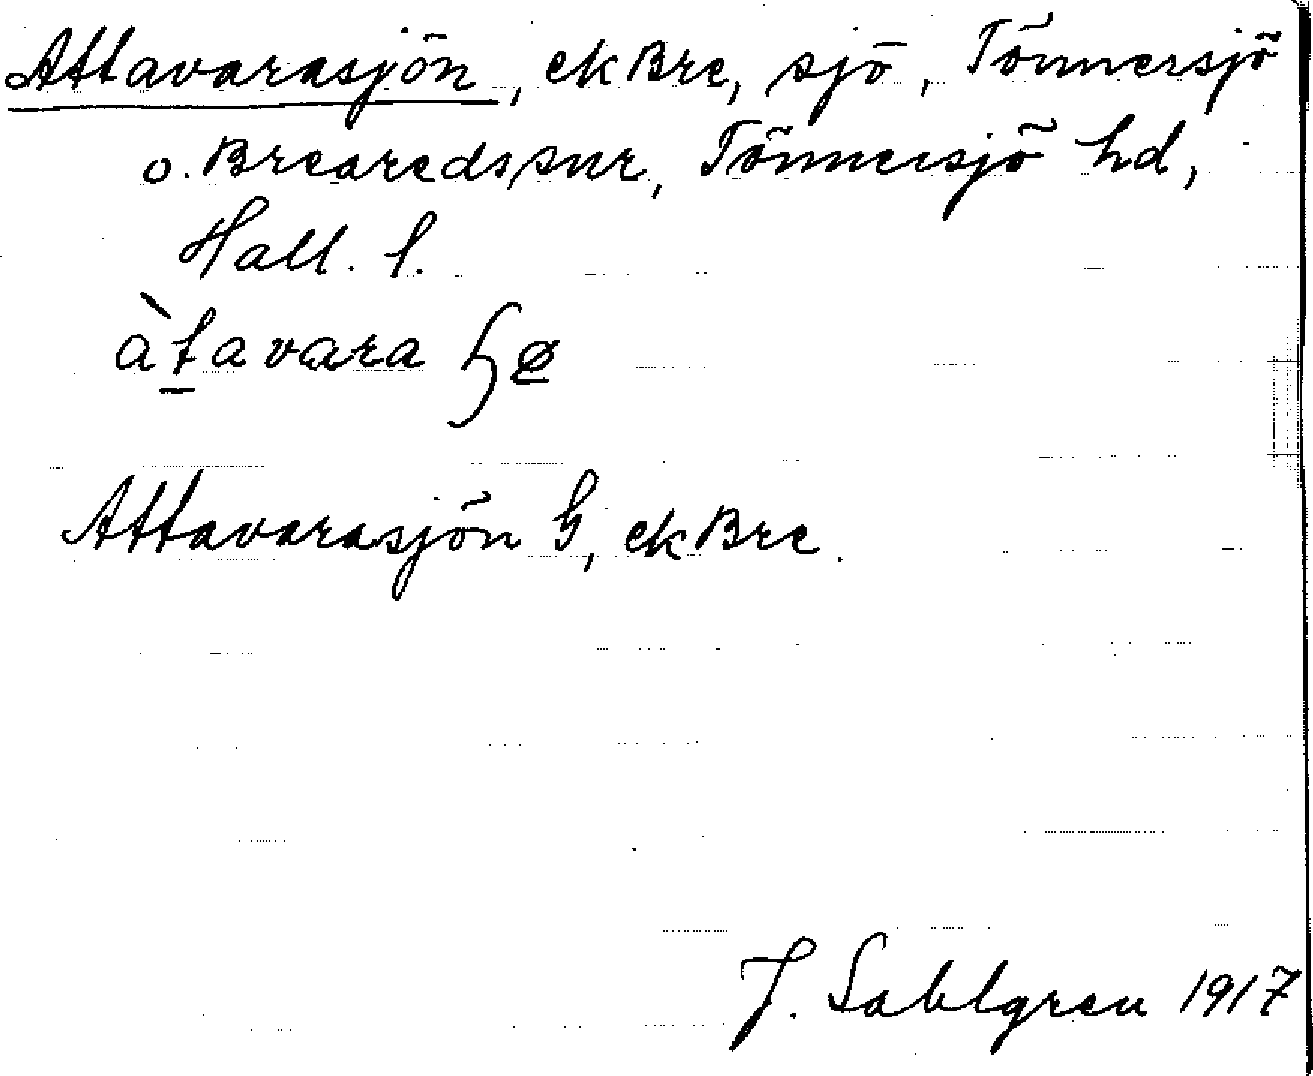 Attavarasjön, ekBre, sjö, Tönnersjö
o. Brearedssnr, Tönnersjö hd,
Hall. l.
àtavara
Attavarasjön G, ekBre.
J. Sahlgren 1917